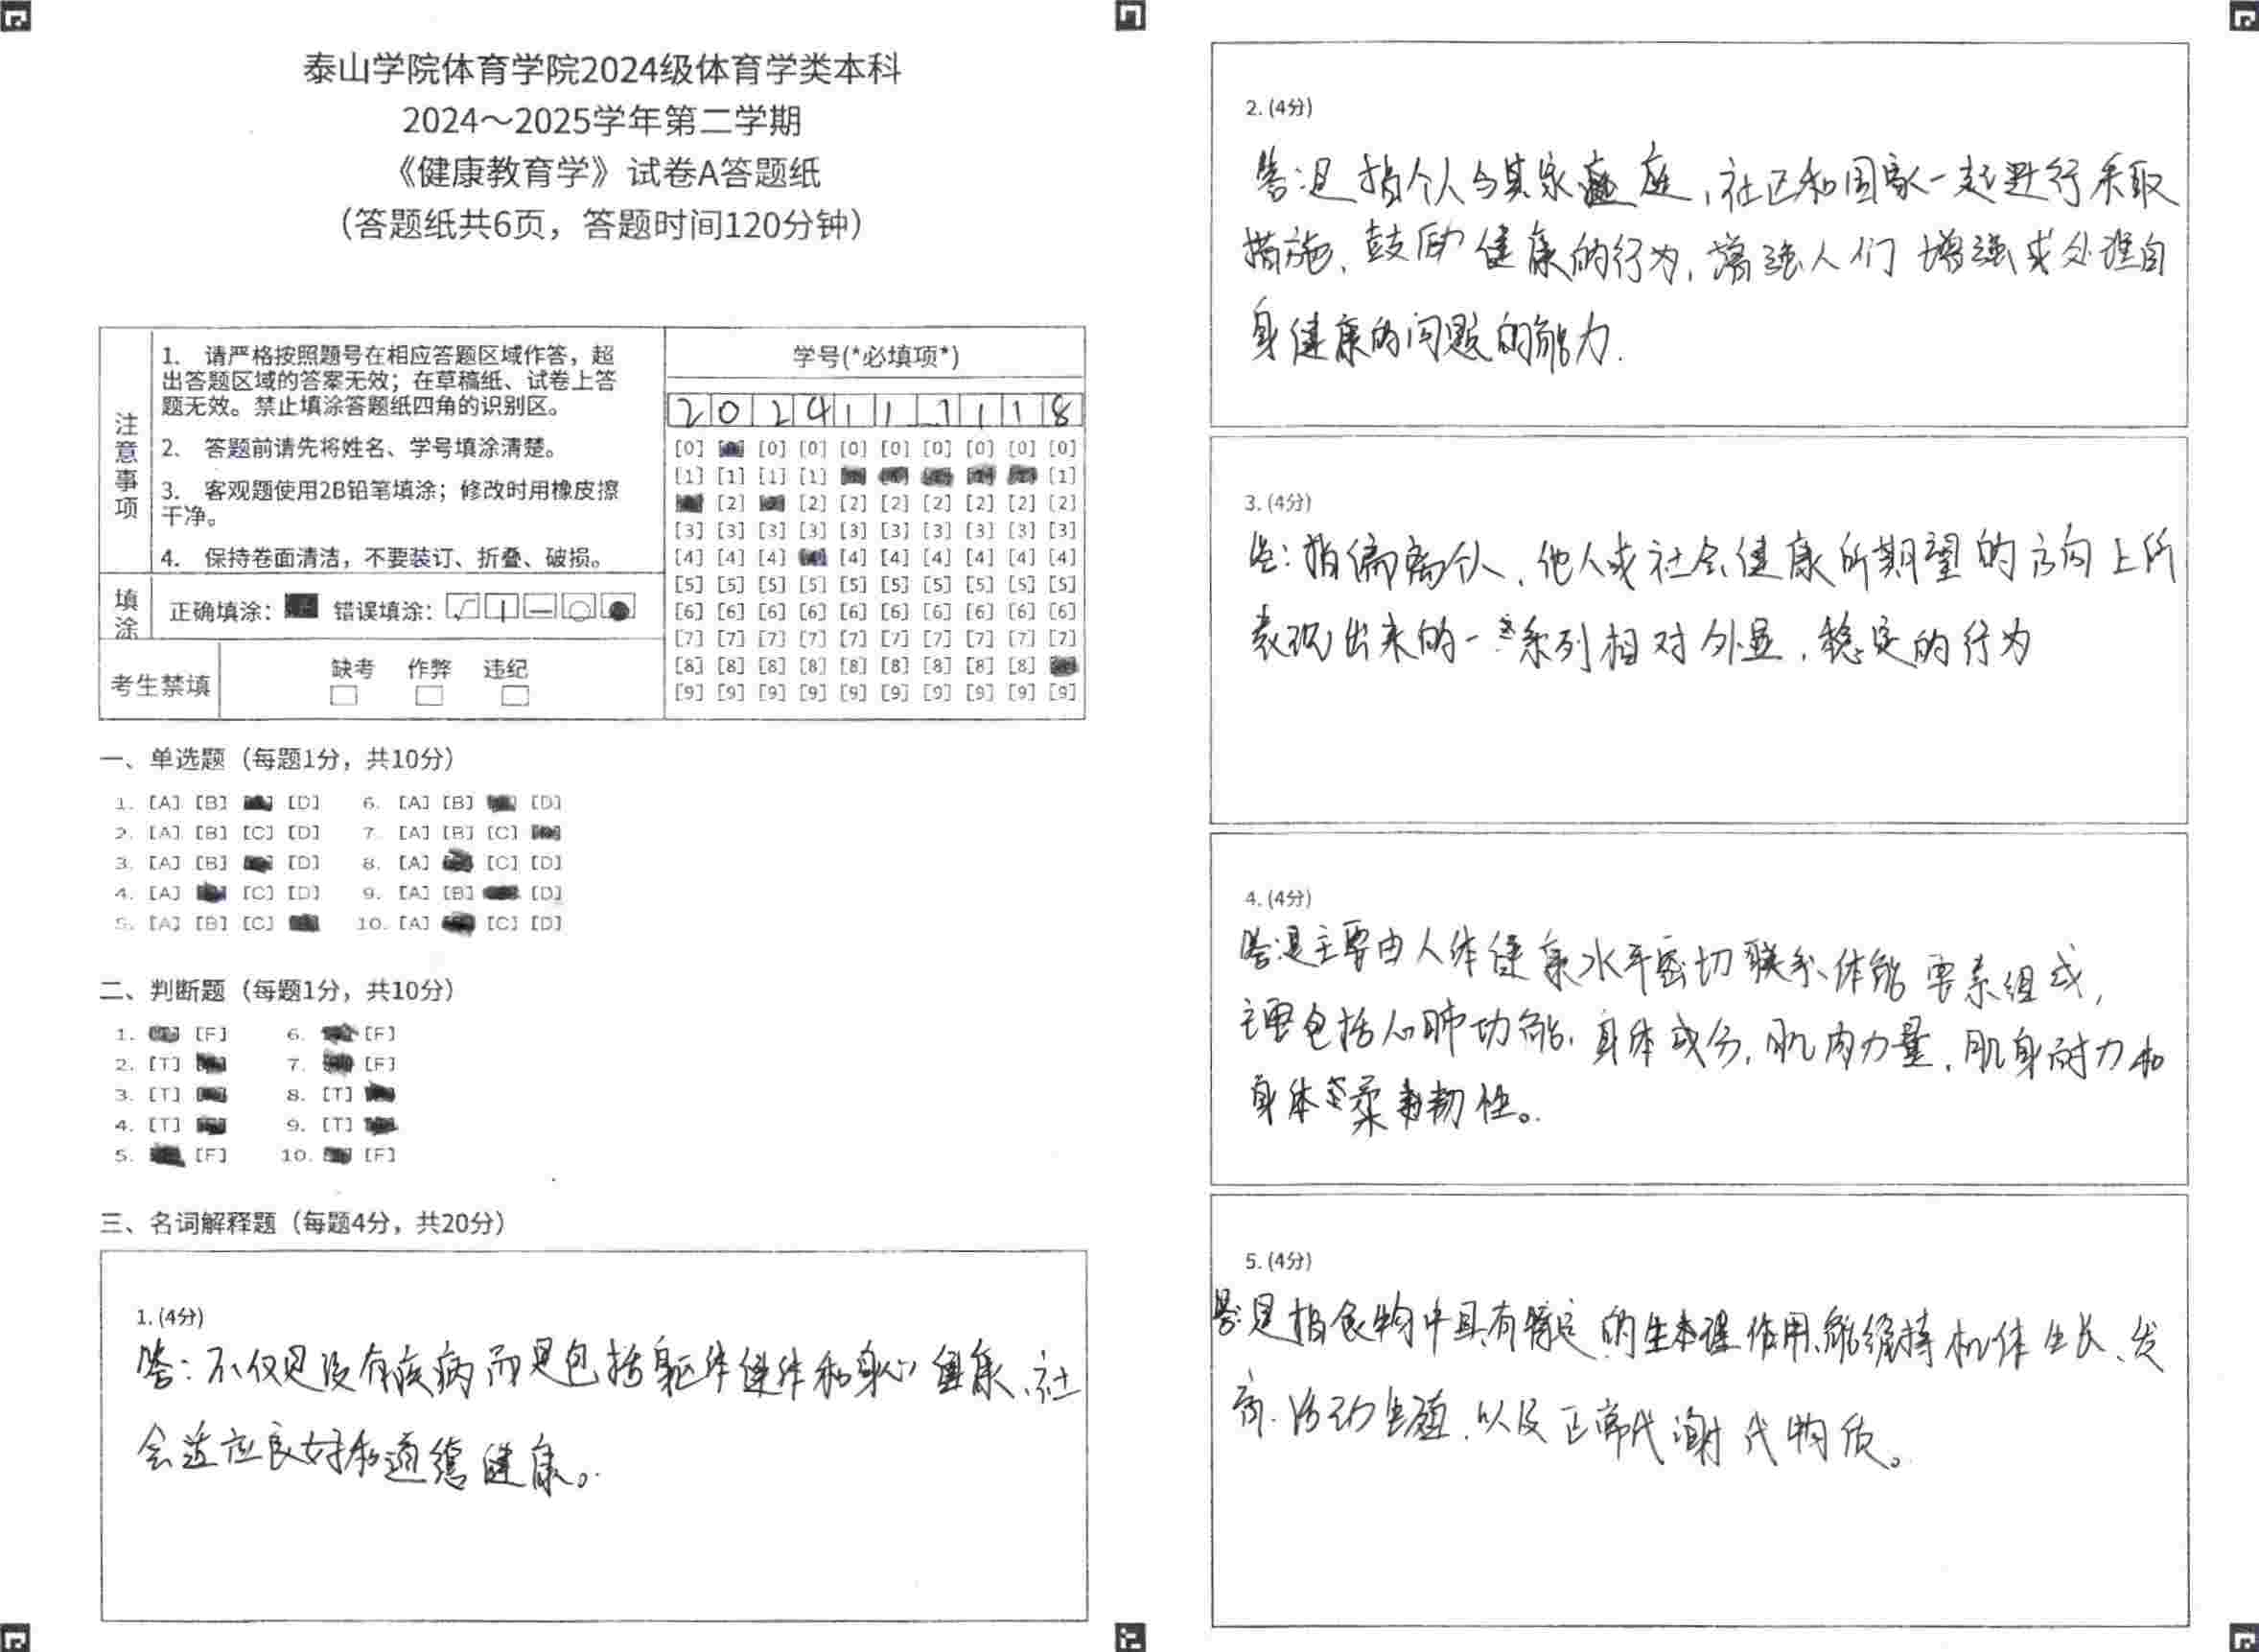 泰山学院体育学院2024级体育学类本科
2024～2025学年第二学期
《健康教育学》试卷A答题纸
（答题纸共6页，答题时间120分钟）
注意事项
1. 请严格按照题号在相应答题区域作答，超
出答题区域的答案无效；在草稿纸、试卷上答
题无效。禁止填涂答题纸四角的识别区。
2. 答题前请先将姓名、学号填涂清楚。
3. 客观题使用2B铅笔填涂；修改时用橡皮擦
干净。
4. 保持卷面清洁，不要装订、折叠、破损。
填涂
正确填涂： 错误填涂：
考生禁填
缺考 作弊 违纪
学号(*必填项*)
2 0 2 4 1 1 1 1 1 8
[0] [0] [0] [0] [0] [0] [0] [0] [0]
[1] [1] [1] [1] [1]
[2] [2] [2] [2] [2] [2] [2] [2]
[3] [3] [3] [3] [3] [3] [3] [3] [3] [3]
[4] [4] [4] [4] [4] [4] [4] [4] [4]
[5] [5] [5] [5] [5] [5] [5] [5] [5] [5]
[6] [6] [6] [6] [6] [6] [6] [6] [6] [6]
[7] [7] [7] [7] [7] [7] [7] [7] [7] [7]
[8] [8] [8] [8] [8] [8] [8] [8] [8]
[9] [9] [9] [9] [9] [9] [9] [9] [9] [9]
一、单选题（每题1分，共10分）
1. [A] [B] [D] 6. [A] [B] [D]
2. [A] [B] [C] [D] 7. [A] [B] [C]
3. [A] [B] [D] 8. [A] [C] [D]
4. [A] [C] [D] 9. [A] [B] [D]
5. [A] [B] [C] 10. [A] [C] [D]
二、判断题（每题1分，共10分）
1. [F] 6. [F]
2. [T] 7. [F]
3. [T] 8. [T]
4. [T] 9. [T]
5. [F] 10. [F]
三、名词解释题（每题4分，共20分）
1. (4分)
答：不仅是没有疾病而是包括躯体健体和身心健康、社
会适应良好和道德健康。
2. (4分)
答：是指个人与其家庭，社区和国家一起进行采取
措施，鼓励健康的行为，增强人们增强或处理自
身健康的问题的能力.
3. (4分)
答：指偏离个人、他人或社会健康所期望的方向上所
表现出来的一系列相对外显，稳定的行为
4. (4分)
答：是主要由人体健康水平密切联系体能要素组成，
主要包括心肺功能，身体成分，肌肉力量，肌身耐力和
身体柔韧性。
5. (4分)
答：是指食物中具有特定的生理作用、能维持机体生长、发
育、活动生殖、以及正常代谢代物质。